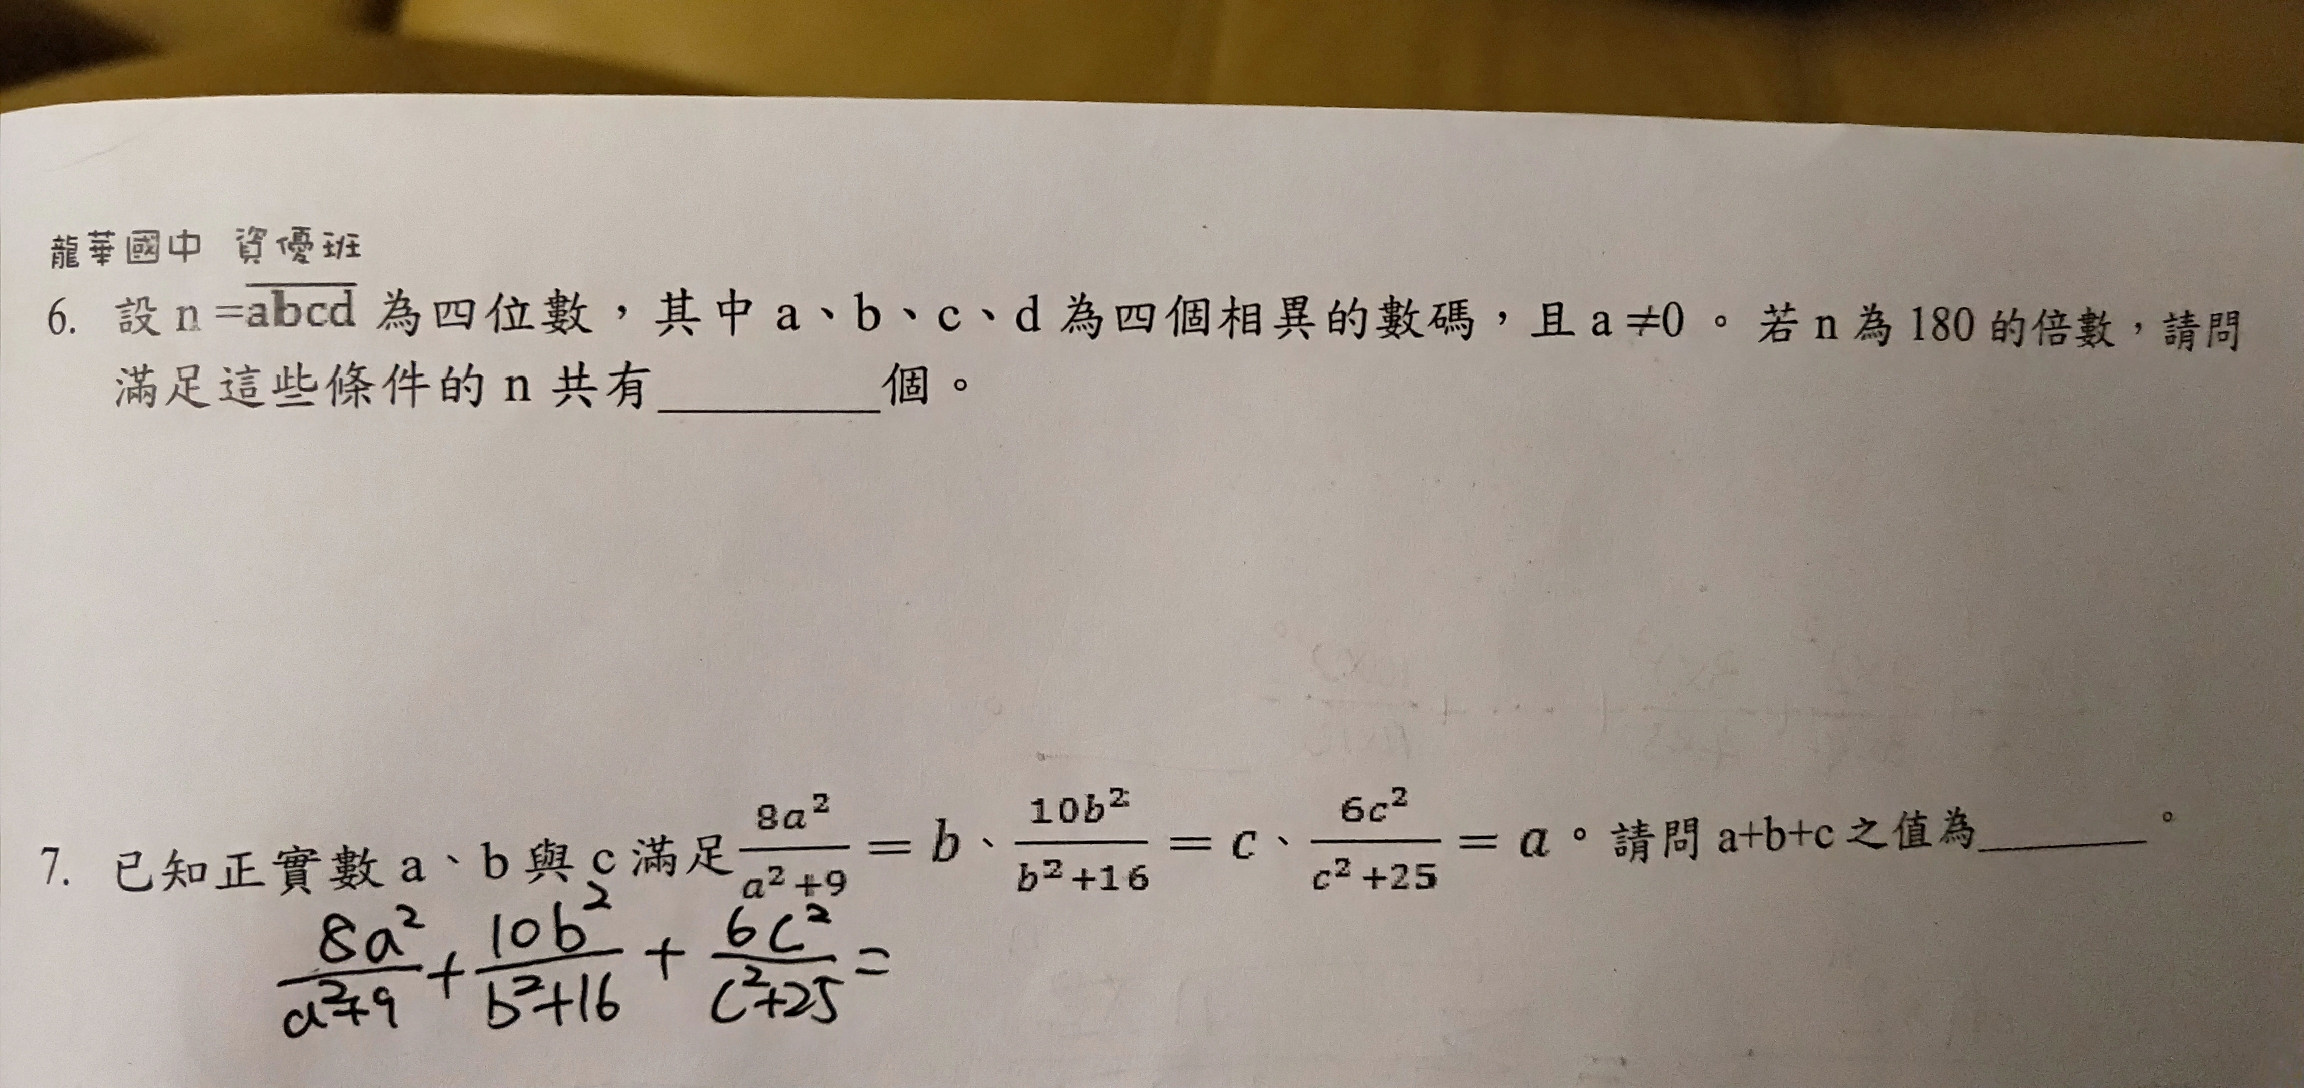 龍華國中 資優班
6. 設 n =abcd 為四位數，其中 a、b、c、d 為四個相異的數碼，且 a ≠0 。 若 n 為 180 的倍數，請問
滿足這些條件的 n 共有________個。
7. 已知正實數 a、b 與 c 滿足 8a²/(a²+9) = b、10b²/(b²+16) = c、6c²/(c²+25) = a。請問 a+b+c 之值為______。
8a²/(a²+9) + 10b²/(b²+16) + 6c²/(c²+25) =